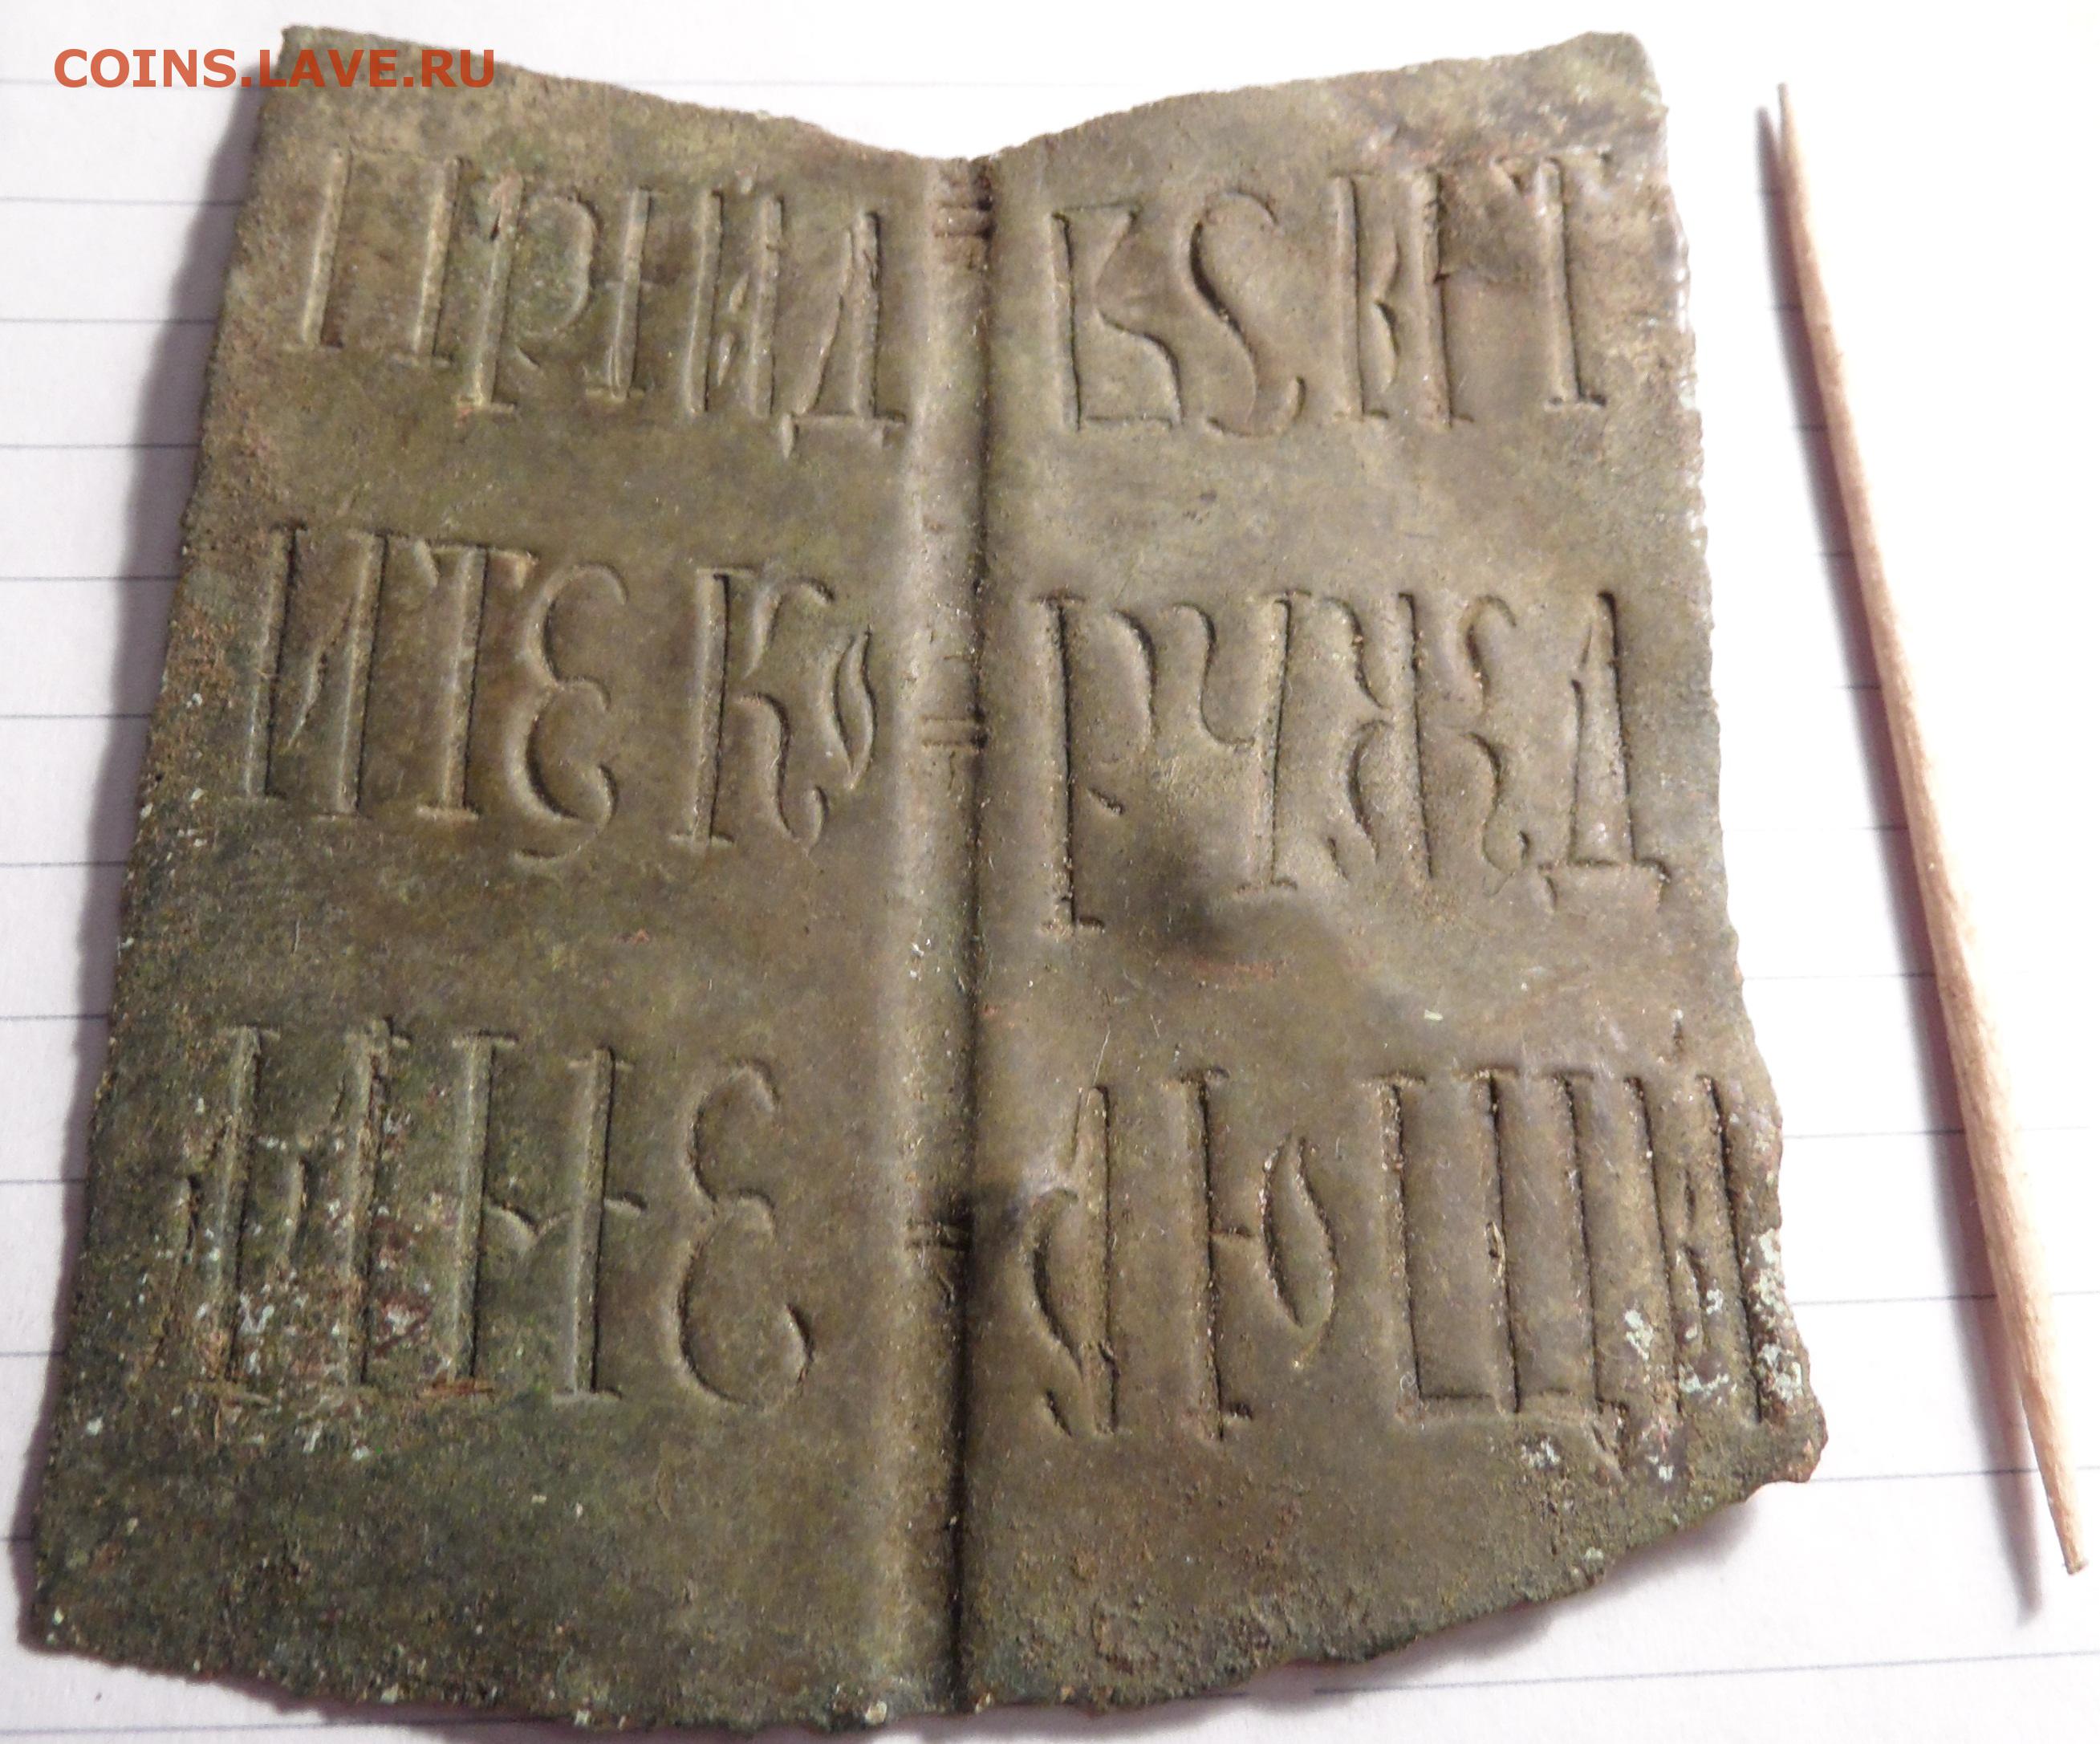 COINS.LAVE.RU
ПРИИД
ИТЕ КО
МНЕ
ВSИ Т
РУЖД
АЮЩИ